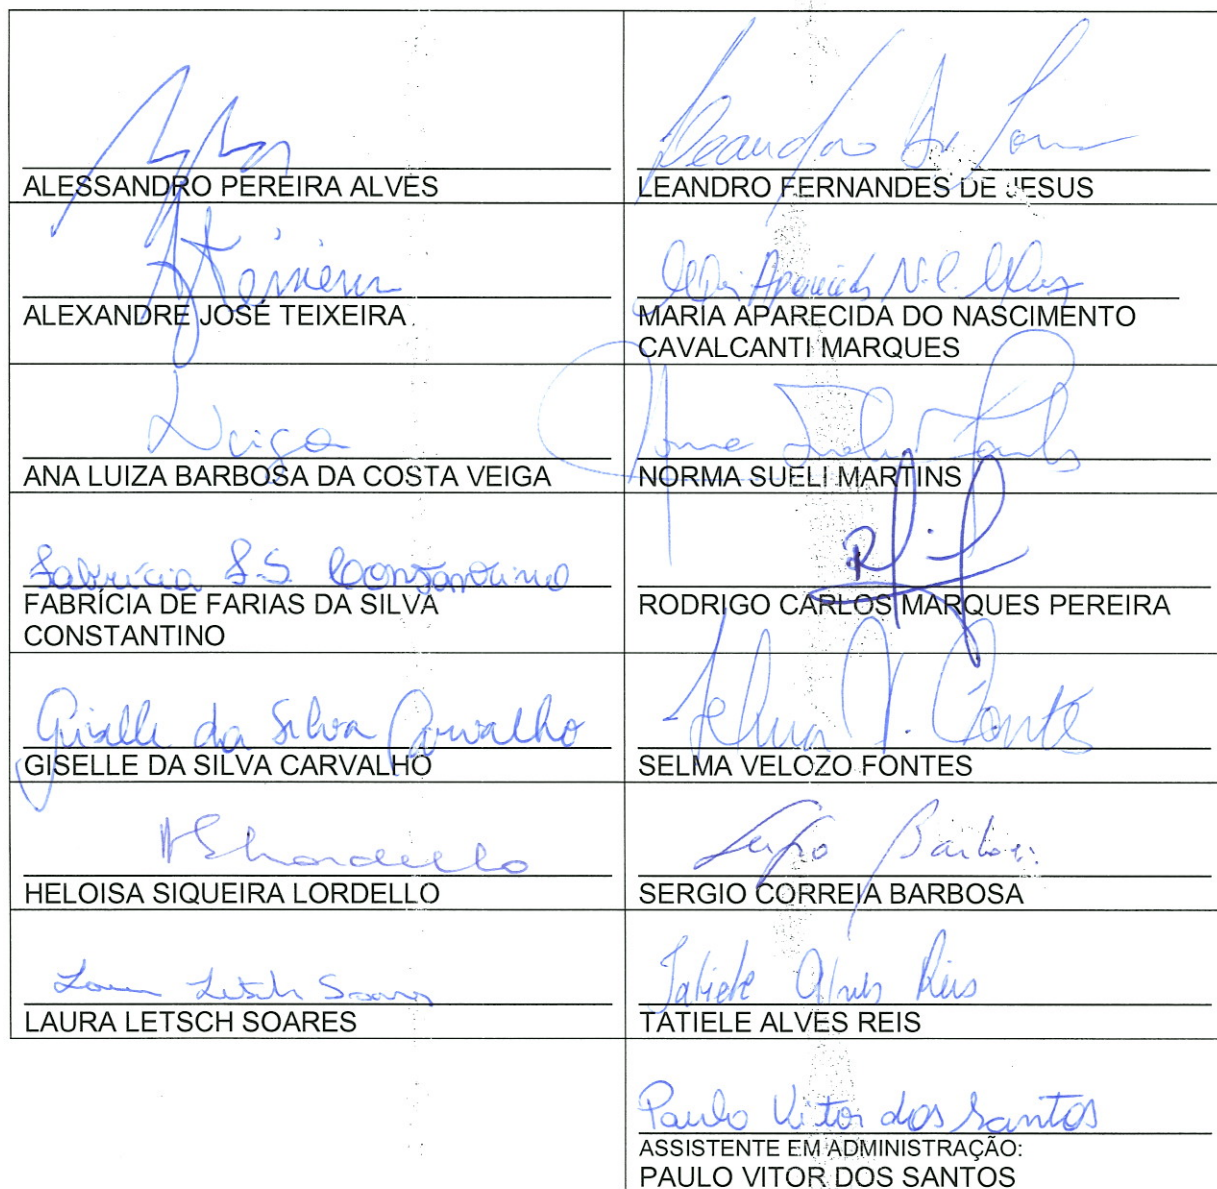 ALESSANDRO PEREIRA ALVES
Leandro
LEANDRO FERNANDES DE JESUS
ATeixeira
ALEXANDRE JOSÉ TEIXEIRA
Aparecida N. C.
MARIA APARECIDA DO NASCIMENTO
CAVALCANTI MARQUES
Veiga
ANA LUIZA BARBOSA DA COSTA VEIGA
Norma Sueli
NORMA SUELI MARTINS
Fabrícia F. S. Constantino
FABRÍCIA DE FARIAS DA SILVA
CONSTANTINO
RODRIGO CARLOS MARQUES PEREIRA
Giselle da Silva Carvalho
GISELLE DA SILVA CARVALHO
Selma V. Fontes
SELMA VELOZO FONTES
HSLordello
HELOISA SIQUEIRA LORDELLO
Sergio Barbosa
SERGIO CORREIA BARBOSA
Laura Letsch Soares
LAURA LETSCH SOARES
Tatiele Alves Reis
TATIELE ALVES REIS
Paulo Vitor dos Santos
ASSISTENTE EM ADMINISTRAÇÃO:
PAULO VITOR DOS SANTOS